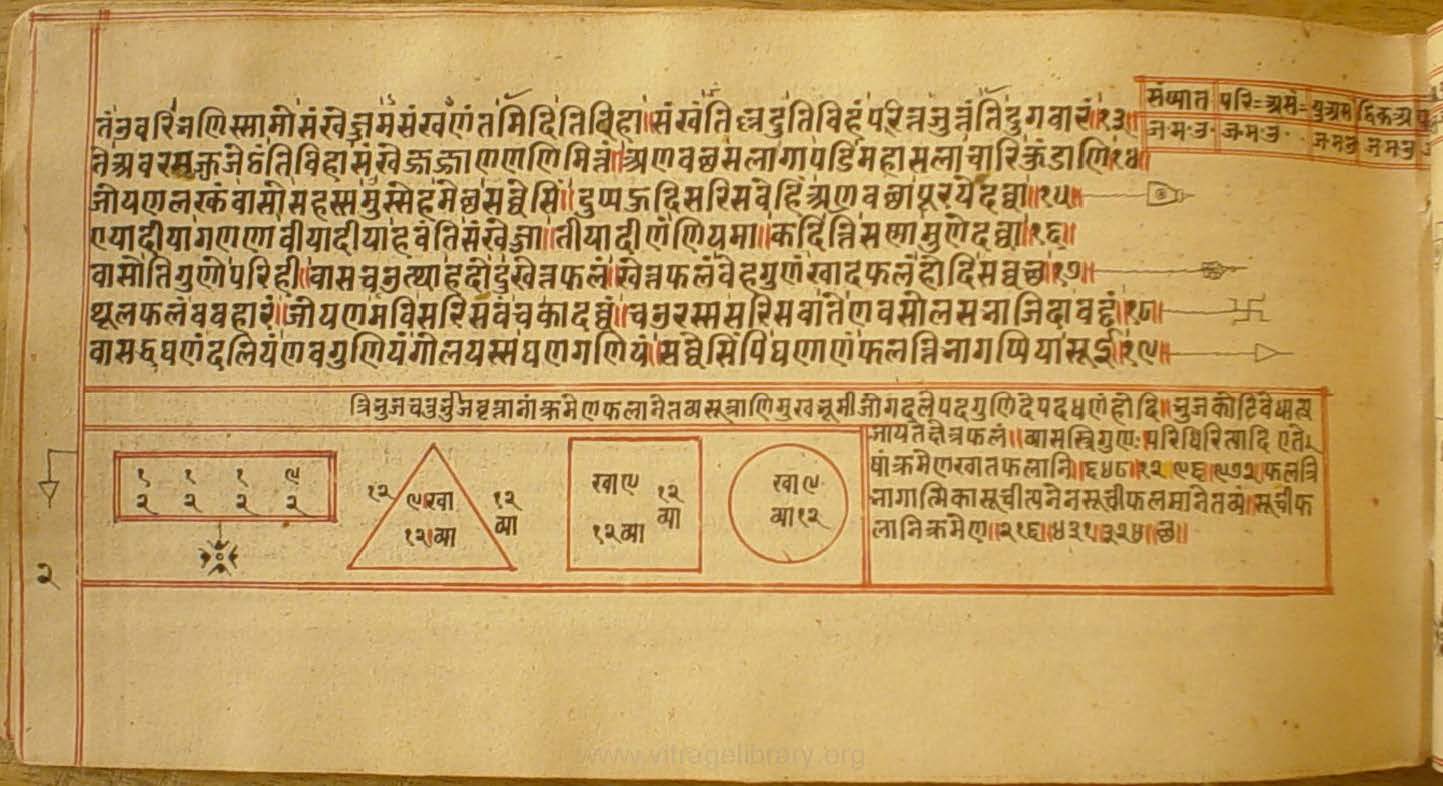 तंउवरिंभणिस्सामोसंखेज्जमसंखणंतमिदितिविहा॥संखंतिल्लदुतिविहंपरित्तजुत्तंतिदुगवारं॥१३॥
तेअवरमज्झजेठंतिविहासंखेज्जजाणणणिमित्तं॥अणवत्थसलागापडिमहासलाचारिकुंडाणि॥१४॥
जोयणलक्खंवासोसहस्समुस्सेहमेत्थसव्वेसिं॥दुप्पहुदिसरिसवेहिंअणवत्थापूरयेदव्वा॥१५॥
एयादीयागणणावीयादीयाहवंतिसंखेज्जा॥तीयादीणंणियमा॥कदित्तिसण्णामुणेदव्वा॥१६॥
वासोतिगुणोपरिही॥वासचउत्थाहदोदुखेत्तफलं॥खेत्तफलंवेहगुणंखादफलंहोदिसव्वत्थ॥१७॥
थूलफलंववहारं॥जोयणमविसरिसवंचकादव्वं॥चउरस्ससरिसवातेणवसोलसभाजिदावट्टं॥१८॥
वासद्धघणंदलियंणवगुणियंगोलयस्सघणगणियं॥सव्वेसिंपिघणाणंफलत्तिभागप्पियासूई॥१९॥
संख्यात परि=असं= यु=असं द्विक=अ
ज‧म‧उ‧ ज‧म‧उ‧ जमउ जमउ
त्रिभुजचतुर्भुजवृत्तानांक्रमेणफलानेतव्यसूत्राणिमुखभूमीजोगदलेपदगुणिदेपदधणंहोदि॥भुजकोटिवेधात्
जायतेक्षेत्रफलं॥व्यासस्त्रिगुणः परिधिरित्यादि एते
षांक्रमेणखातफलानि॥६४८॥१२९६॥९७२॥फलत्रि
भागात्मिकासूचीत्यनेनसूचीफलमानेतव्यं॥सूचीफ
लानिक्रमेण॥२१६॥४३२॥३२४॥छ॥
१ १ १ ९
२ २ २ २
१२
९खा
१२व्या
१२
व्या
खा९
१२
व्या
१२व्या
खा९
व्या१२
२
www.vitragelibrary.org